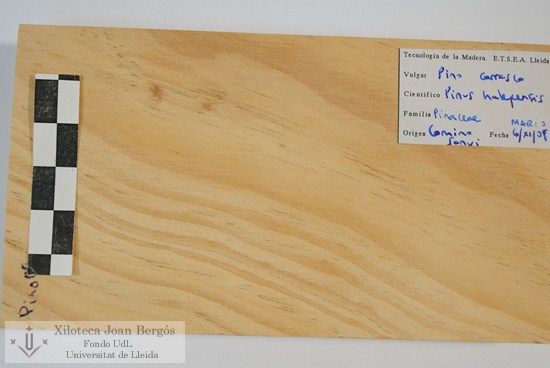 Tecnología de la Madera. E.T.S.E.A. Lleida
Vulgar Pino carrasco
Científico Pinus halepensis
Familia Pinaceae
MARIO
Origen Camino Fecha 6/XI/08
Pino
Xiloteca Joan Bergós
Fondo UdL
Universitat de Lleida